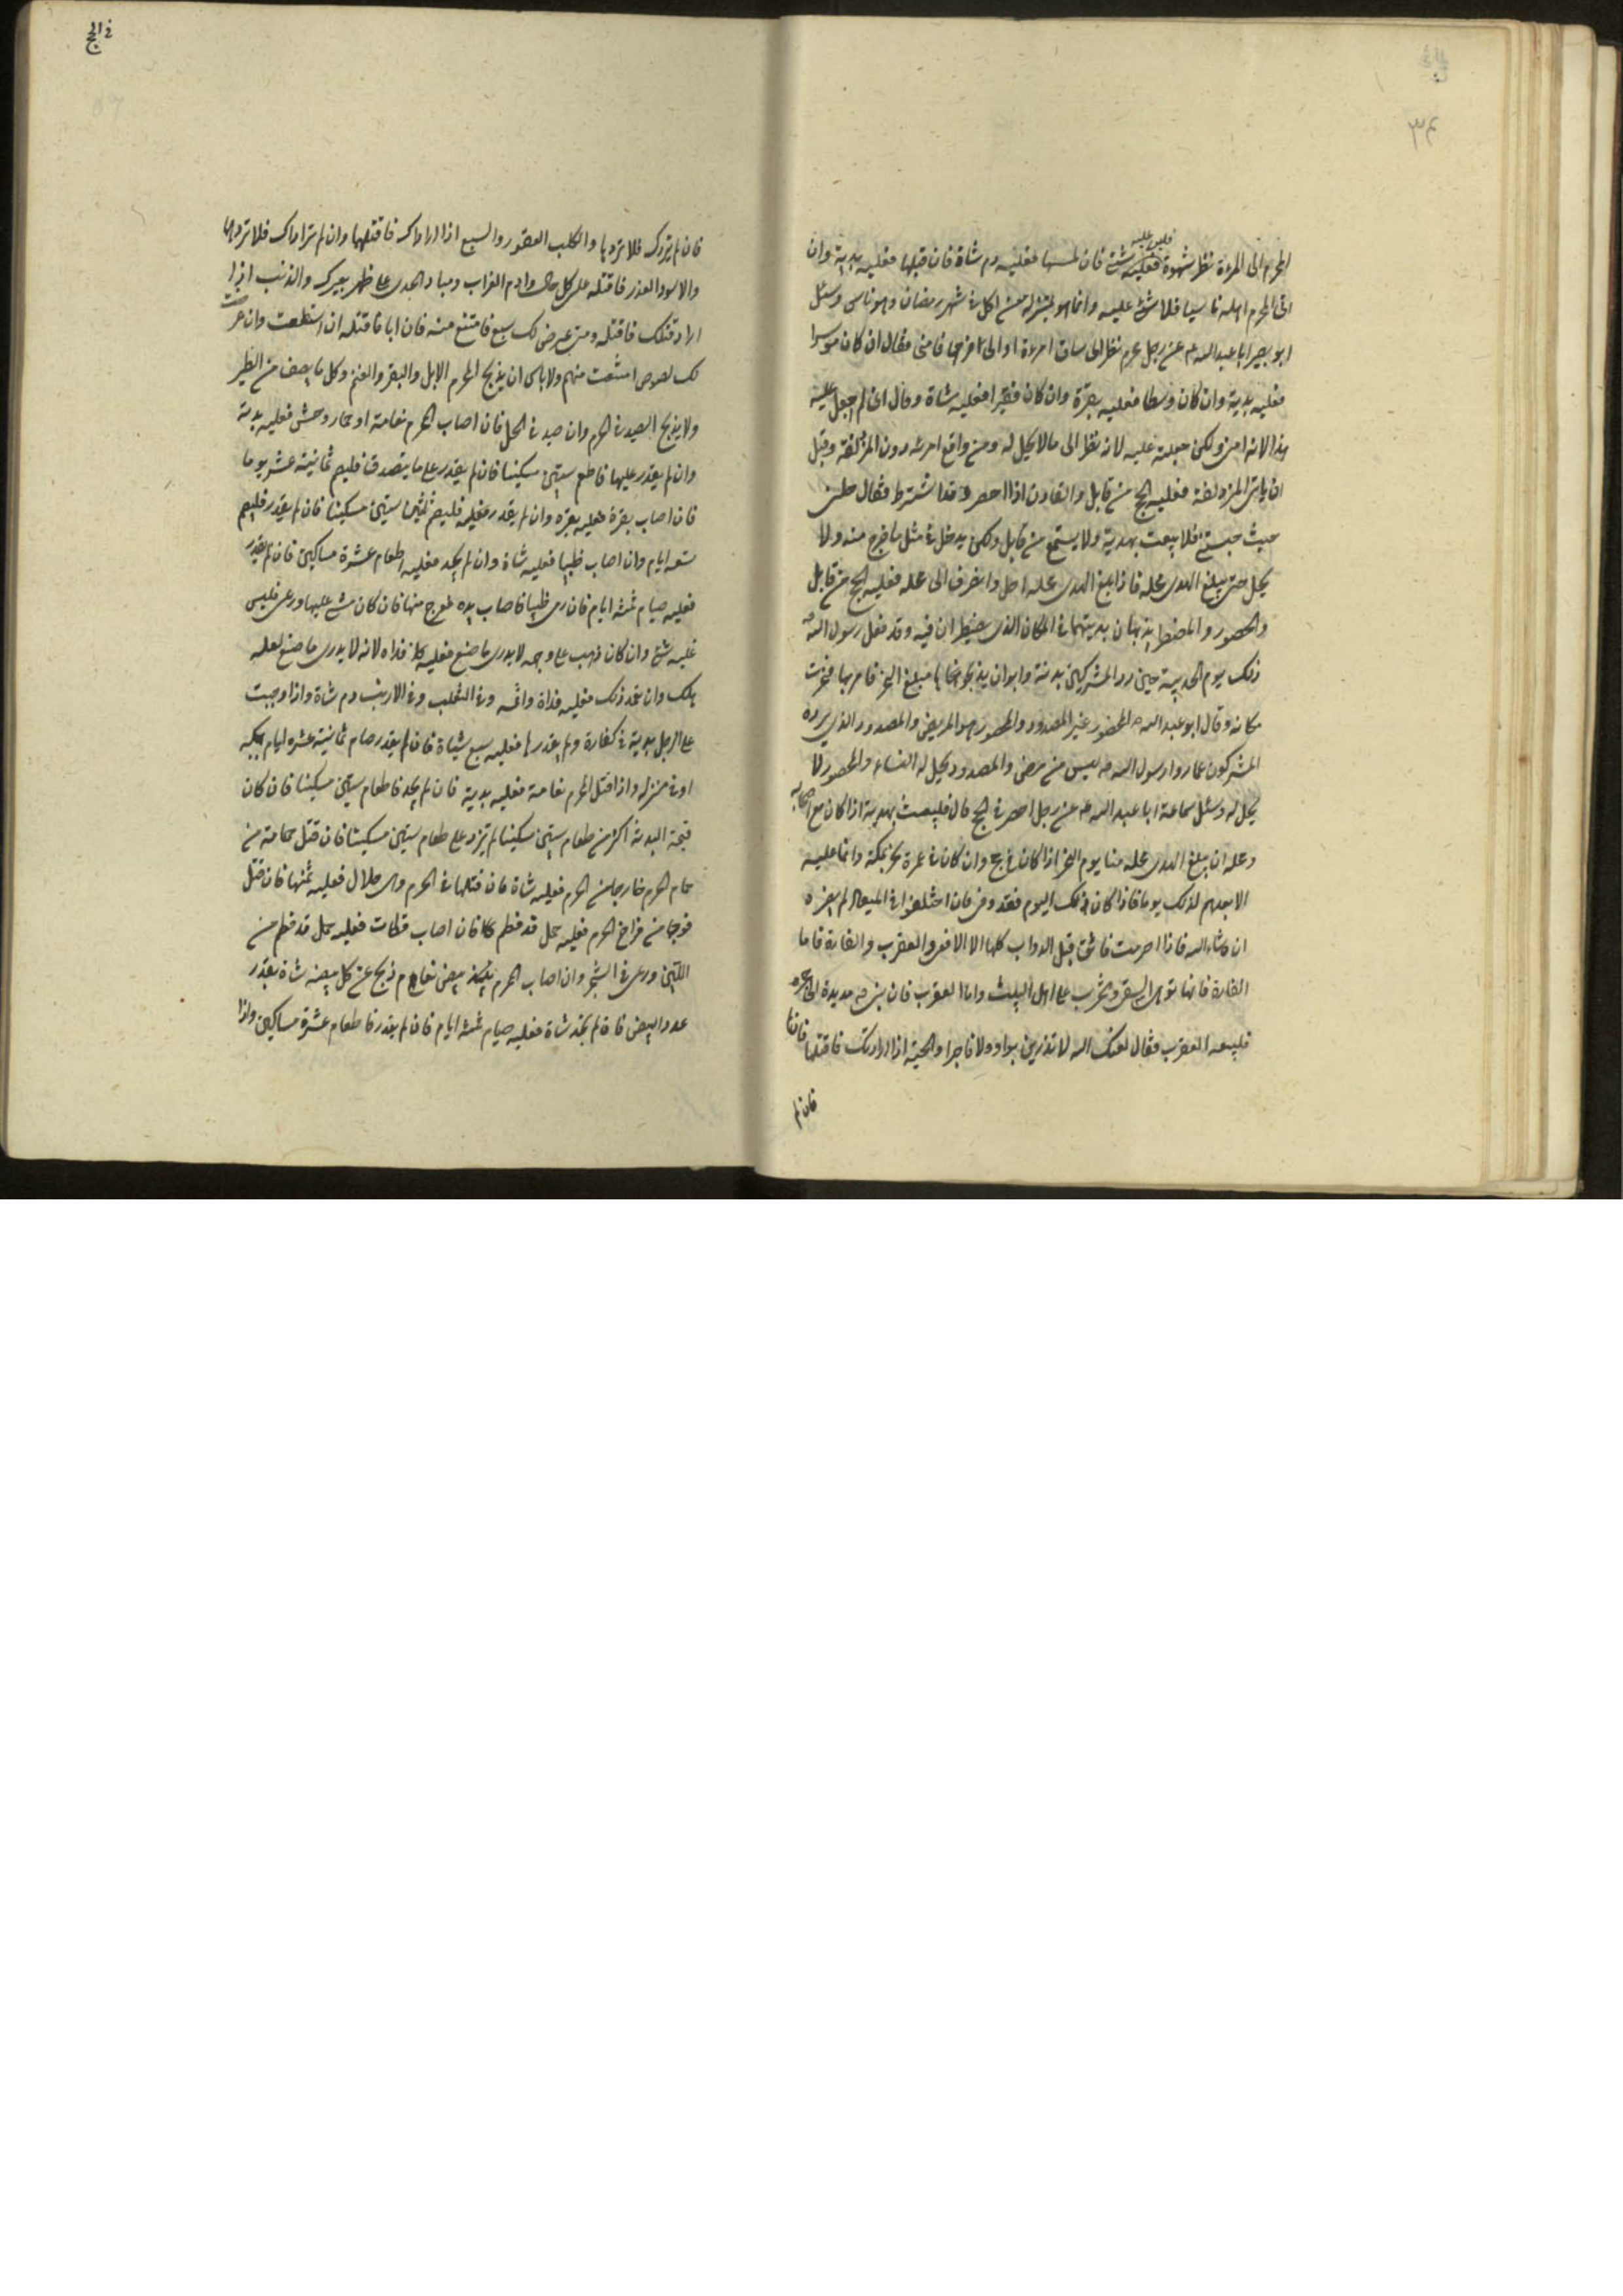 المحرم الى المرءة نظر شهوة فليس عليه شئ فان لمسها فعليه دم شاة فان قبلها فعليه بدنة وان
اتى المحرم اهله ناسيا فلا شئ عليه وانما هو بمنزله من اكل فى شهر رمضان وهو ناسى وسئل
ابو بصير ابا عبد الله عم عن رجل محرم نظر الى ساق امرءة او الى فرجها فامنى فقال ان كان موسرا
فعليه بدنة وان كان وسطا فعليه بقرة وان كان فقيرا فعليه شاة وقال انى لم اجعل عليه
هذا لانه امنى ولكن جعلته عليه لانه نظر الى ما لا يحل له ومن واقع امرئه دون المزدلفة وقبل
ان ياتى المزدلفة فعليه الحج من قابل والقارن اذا احصر وقد اشترط فقال حلنى
حيث حبستنى فلا يبعث بهديه ولا يستمتع من قابل ولكن يدخل فى مثل ما خرج منه ولا
يحل حتى يبلغ الهدى محله فاذا بلغ الهدى محله احل وانصرف الى محله فعليه الحج من قابل
والمحصور والمضطر ينهران بدنتهما فى المكان الذى يضطران فيه وقد فعل رسول الله ص
ذلك يوم الحديبية حين رد المشركين بدنته وابوا ان يبلغ المنحر فامر بها فنحرت
مكانه وقال ابو عبد الله المحصور غير المصدود والمحصور هو المريض والمصدود الذى يرده
المشركون كما ردوا رسول الله ص ليس من مرض والمصدود يحل له النساء والمحصور لا
يحل له وسئل سماعة ابا عبد الله عم عن رجل احصر فى الحج قال فليبعث بهديه اذا كان مع اصحابه
ومحله ان يبلغ الهدى محله منا يوم النحر اذا كان فى حج وان كان فى عمرة نحر بمكة وانما عليه
الا يعدهم لذلك يوما فاذا كان ذلك اليوم فقد وفى فان اختلفوا فى الميعاد لم يضره
ان شاء الله فاذا احرمت فاتق قتل الدواب كلها الا الافعى والعقرب والفارة فاما
الفارة فانها توهى السقى وتخرب على اهل البيت واما العقرب فان نبى الله مد يده الى الحجر
فلسعه العقرب فقال لعنك الله لا تذرين برا ولا فاجرا والحية اذا ارادتك فاقتلها فان لم
فان لم
فى الحج
فان لم تردك فلا تردها والكلب العقور والسبع اذا ارادك فاقتلهما وان لم يراداك فلا تردهما
والاسود الغدر فاقتله على كل حال وارم الغراب رميا والحدى على ظهر بعيرك والذئب اذا
اراد قتلك فاقتله ومتى عرض لك سبع فامتنع منه فان ابا فاقتله ان استطعت وان عرضت
لك لصوص امتنعت منهم ولا باس ان يذبح المحرم الابل والبقر والغنم وكل ما يصف من الطير
ولا يذبح الصيد فى الحرم وان صيد فى الحل فان اصاب المحرم نعامة او حمار وحش فعليه بدنة
وان لم يقدر عليها فاطعم ستين مسكينا فان لم يقدر على ما يتصدق فليصم ثمانية عشر يوما
فان اصاب بقرة فعليه بقره وان لم يقدر فعليه فليطعم ثلثين مسكينا فان لم يقدر فليصم
تسعه ايام وان اصاب ظبيا فعليه شاة وان لم يجد فعليه اطعام عشرة مساكين فان لم يقدر
فعليه صيام ثلثه ايام فان رمى ظبيا فاصاب يده فعرج منها فان كان مشى عليها ورعى فليس
عليه شئ وان كان ذهب على وجهه لا يدرى ما صنع فعليه فداه لانه لا يدرى ما صنع لعله
هلك وان تعمد ذلك فعليه فداة واثمه وفى الثعلب وفى الارنب دم شاة واذا وجبت
على الرجل بدنة فى كفارة ولم يقدر لها فعليه سبع شياة فان لم يقدر صام ثمانية عشر ايام بمكه
او فى منزله واذا قتل المحرم نعامة فعليه بدنة فان لم يجد فاطعام ستين مسكينا فان كان
قيمة البدنة اكثر من طعام ستين مسكينا لم يزد على طعام ستين مسكينا فان قتل حمامة من
حمام الحرم خارجا من الحرم فعليه شاة فان قتلها فى الحرم وهى حلال فعليه ثمنها فان قتل
فرخا من فراخ الحرم فعليه حمل قد فطم فان اصاب قطاة فعليه حمل قد فطم من
اللبن ورعى فى الشجر وان اصاب المحرم بيض نعام ذبح عن كل بيضه شاة بقدر
عدد البيض فان لم يجد شاة فعليه صيام ثلثه ايام فان لم يقدر فاطعام عشرة مساكين واذا